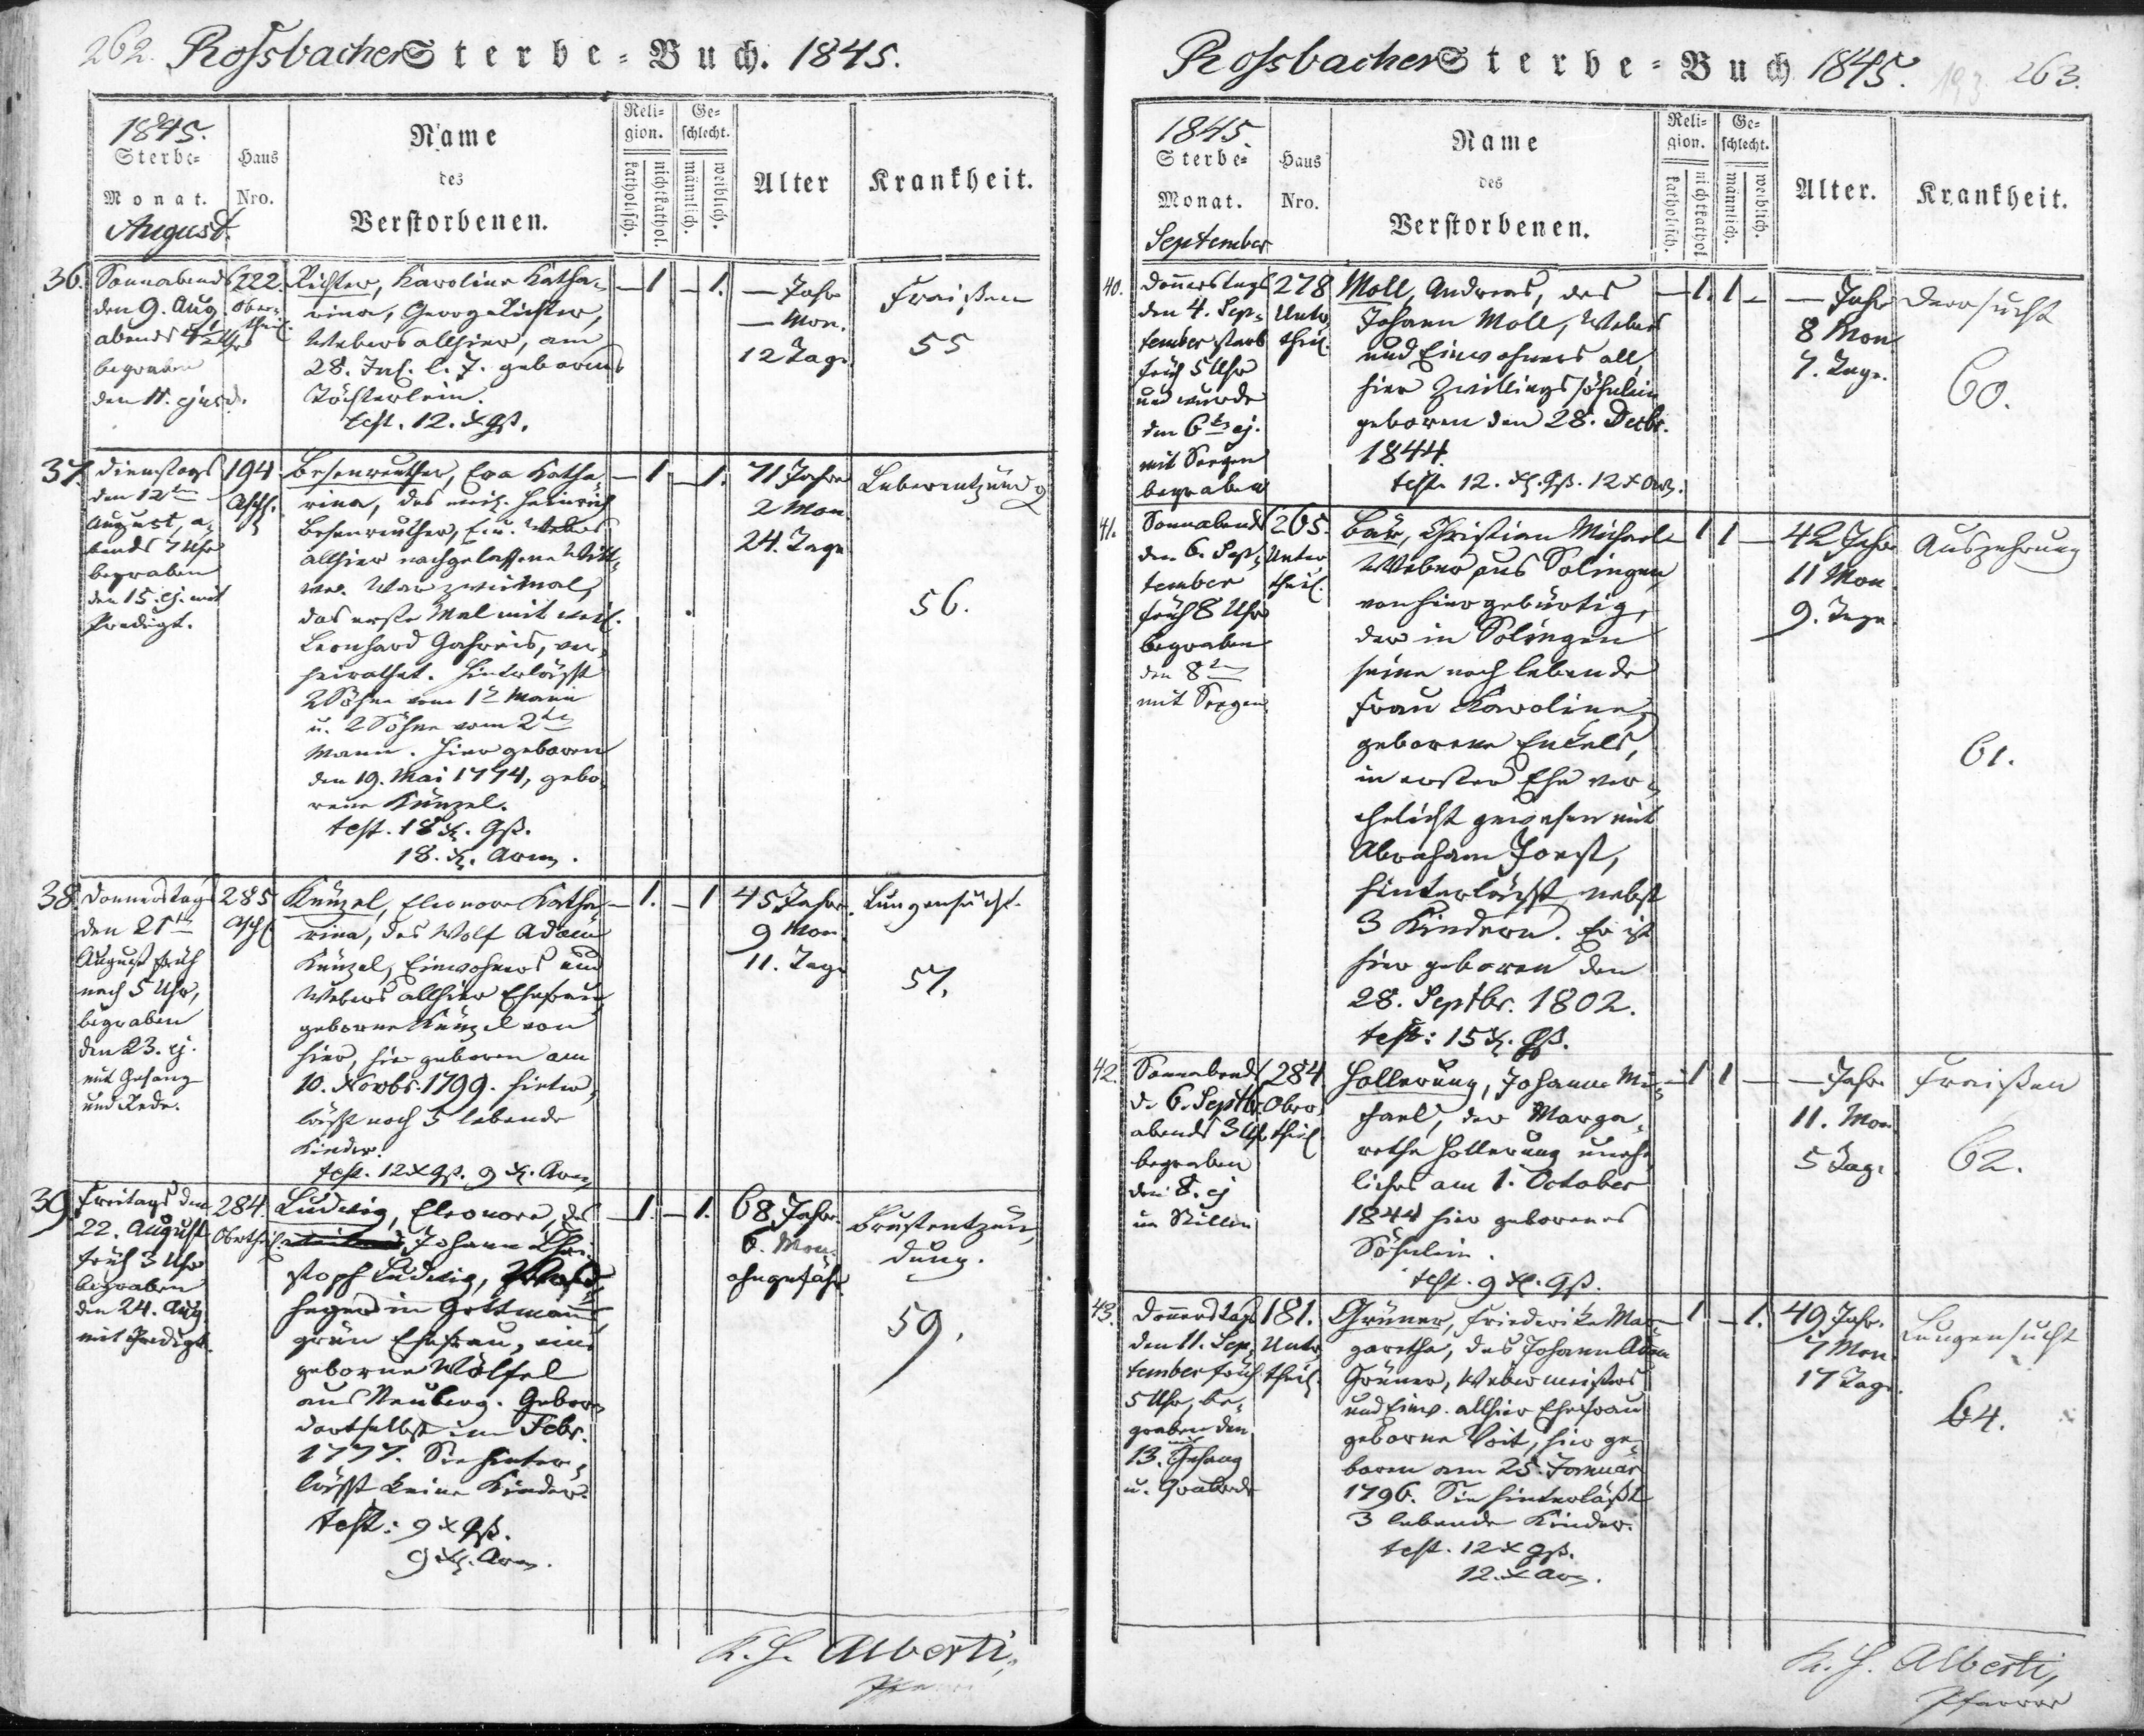 262. Rossbacher Sterbe-Buch. 1845.
1845.
Sterbe-
Monat.
August.
Haus
Nro.
Name
des
Verstorbenen.
Reli-
gion.
katholisch.
nichtkathol.
Ge-
schlecht.
männlich.
weiblich.
Alter
Krankheit.
36.
Sonnabends
den 9. Aug.
abends
begraben
den 11. ejusd.
222.
Ober-
theil.
Richter, Karoline Katha-
rina, George Richter,
Webers allhier, am
28. Jul. l. J. gebornes
Töchterlein.
test. 12. x gß.
— 1 — 1.
— Jahr
— Mon.
12 Tage
Fraißen
55
37.
Dienstags
den 12ten
August, a-
bends 7 Uhr
begraben
den 15. ej. mit
Predigt.
194
Asch.
Besenreuther, Eva Katha-
rina, des weil. Heinrich
Besenreuther, Ein. Webers
allhier nachgelassene Witt-
we. War zweimal,
das erste Mal mit weil.
Leonhard Gahreis, ver-
heirathet. Hinterläßt
2 Söhne vom 1ten Mann
u. 2 Söhne vom 2ten
Mann. Hier geboren
den 19. Mai 1774, gebo-
rene Künzel.
test. 18 x. gß.
18. x. Arm.
— 1 — 1.
71 Jahre
2 Mon.
24. Tage
Leberentzündg
56.
38.
Donnerstag
den 21ten
August früh
nach 5 Uhr,
begraben
den 23. ej.
mit Gesang
und Rede.
285
Asch
Künzel, Eleonore Katha-
rina, des Wolf Adam
Künzel, Einwohners und
Webers allhier Ehefrau,
geborne Künzel von
hier, hier geboren am
10. Novbr. 1799. Hinter-
läßt noch 5 lebende
Kinder.
test. 12 x gß. 9 x. Arm
— 1. — 1
45 Jahre.
9 Mon.
11. Tage
Lungensucht.
57.
39.
Freitags den
22. August
früh 3 Uhr
begraben
den 24. Aug
mit Predigt.
284.
Obertheil.
Ludwig, Eleonore, des
Johann Chri-
stoph Ludwig,
heger in Gottmanns-
grün Ehefrau, eine
geborne Wölfel
aus Neuberg. Geboren
dortselbst im Febr.
1777. Sie hinter-
läßt keine Kinder.
test: 9 x gß.
9 x. Arm.
— 1. — 1.
68 Jahr.
6. Mon.
ohngefähr
Brustentzün-
dung.
59.
K. H. Alberti,
Rossbacher Sterbe-Buch 1845. 193 263.
1845
Sterbe-
Monat.
September
Haus
Nro.
Name
des
Verstorbenen.
Reli-
gion.
katholisch.
nichtkathol
Ge-
schlecht.
männlich.
weiblich.
Alter.
Krankheit.
40.
Donnerstags
den 4. Sep-
tember starb
früh 5 Uhr
und wurde
den 6ten ej.
mit Seegen
begraben
278
Unter
theil.
Moll, Andreas, des
Johann Moll, Webers
und Einwohners all-
hier Zwillingssöhnlein
geboren den 28. Decbr.
1844.
test. 12. x. gß. 12 x Arm.
— 1. 1 —
— Jahr
8 Mon
7. Tage.
Darrsucht
60.
41.
Sonnabends
den 6. Sep-
tember
früh 8 Uhr
begraben
den 8ten
mit Seegen.
265.
Unter
theil.
Bär, Christian Michael
Weber aus Solingen,
von hier gebürtig,
der in Solingen
seine noch lebende
Frau Karoline,
geborene Enkels,
in erster Ehe ver-
ehelicht gewesen mit
Abraham Joest,
hinterläßt nebst
3 Kindern. Er ist
hier geboren den
28. Septbr. 1802.
test: 15 x. gß.
1 1 —
42 Jahr
11 Mon
9. Tage.
Auszehrung
61.
42.
Sonnabends
d. 6. Septbr.
abends 3 Uhr
begraben
den 8. ej
im Stillen
284
Ober-
theil.
Hollerung, Johann Mi-
chael, der Marga-
rethe Hollerung unehe-
liches am 1. October
1844 hier gebornes
Söhnlein.
test. 9 x. gß.
— 1 1 —
— Jahr
11. Mon
5 Tage
Fraißen
62.
43.
Donnerstags
den 11. Sep-
tember früh
5 Uhr, be-
graben den
13. mit Gesang
u. Grabrede
181.
Unter
theil.
Grüner, Friederike Mar-
garetha, des Johann Adam
Grüner, Webermeisters
und Einw. allhier Ehefrau
geborne Voit, hier ge-
boren am 25. Januar
1796. Sie hinterläßt
3 lebende Kinder.
test. 12 x gß.
12. x Arm.
— 1 — 1.
49 Jahr.
7 Mon.
17 Tage.
Lungensucht
64.
K. H. Alberti,
Pfarrer